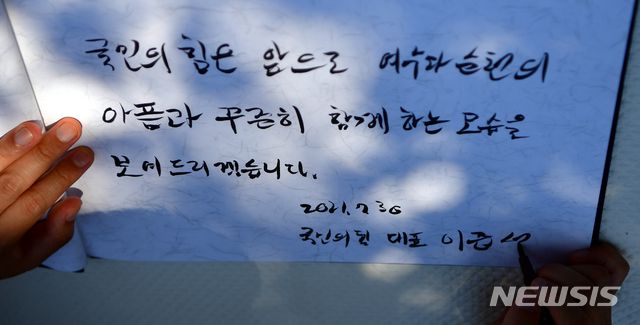 국민의힘은 앞으로 여수와 순천의
아픔과 꾸준히 함께 하는 모습을
보여드리겠습니다.
2021. 7 30
국민의힘 대표 이준석
NEWSIS